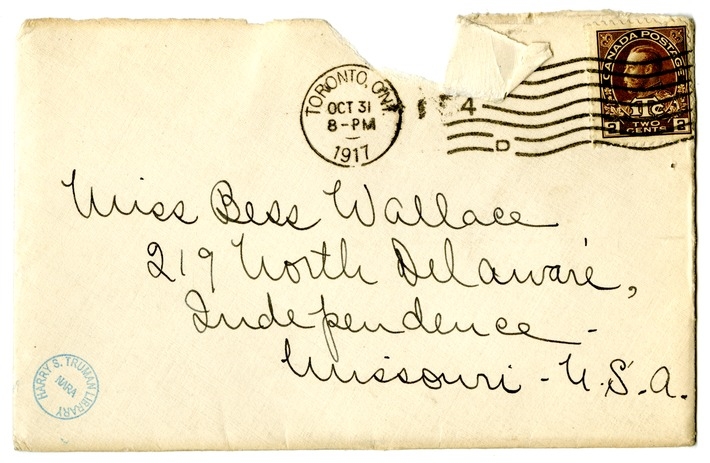 TORONTO, ONT.
OCT 31
8-PM
1917
4
D
CANADA POSTAGE
1TC
2 TWO CENTS 2
Miss Bess Wallace
219 North Delaware,
Independence -
Missouri - U.S.A.
HARRY S. TRUMAN LIBRARY
NARA